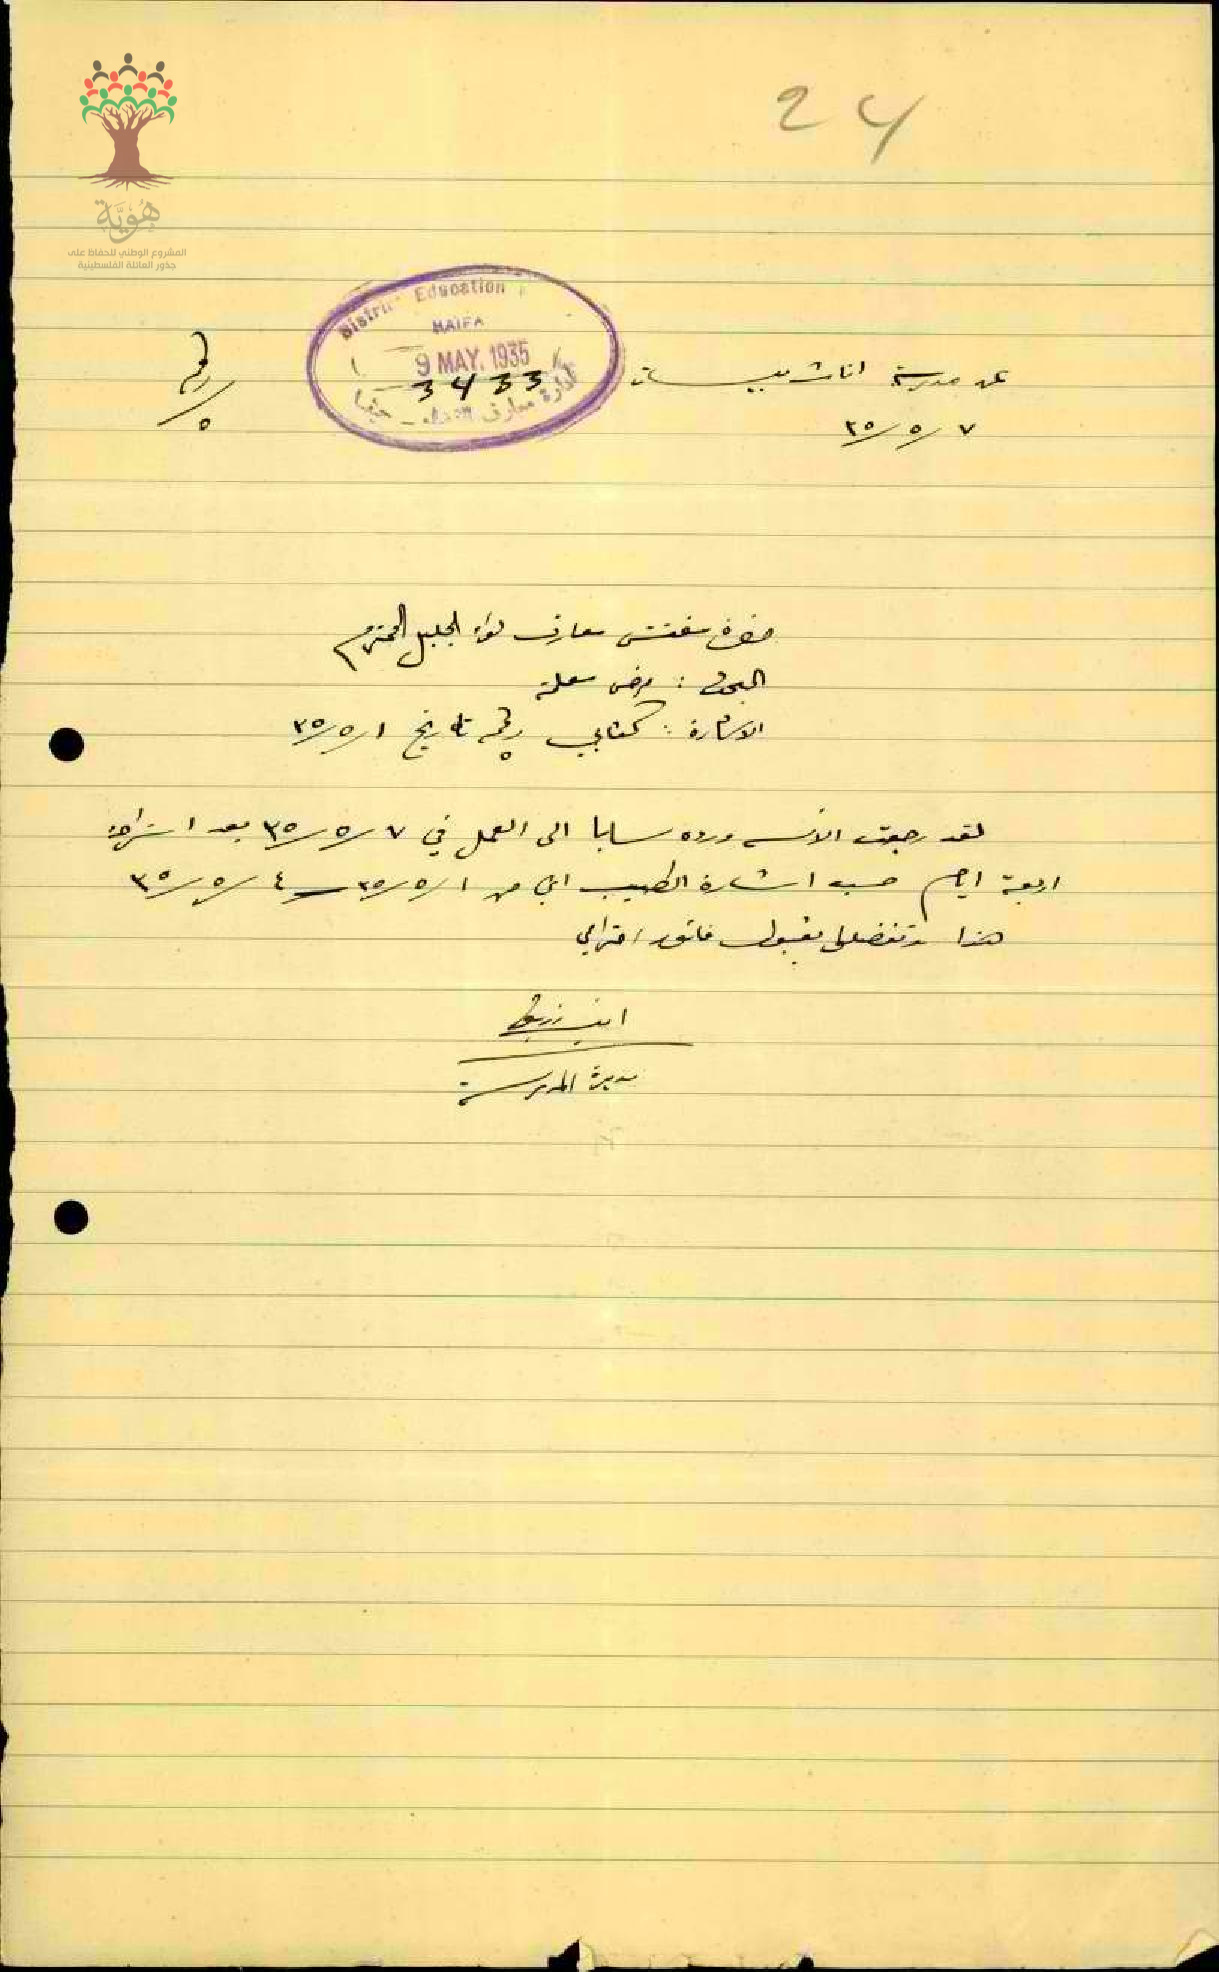 24
هُوِيَّة
المشروع الوطني للحفاظ على
جذور العائلة الفلسطينية
District Education
HAIFA
9 MAY. 1935
3433
ادارة معارف حيفا
عن مدرسة اناث بيسان
رقم
٥
٧/٥/٣٥
حضرة مفتش معارف لواء الجليل المحترم
البحث : مرض معلمة
الاشارة : كتابي رقم تاريخ ١/٥/٣٥
لقد رجعت الآنسه ورده سابا الى العمل في ٧/٥/٣٥ بعد استراحة
اربعة ايام حسب اشارة الطبيب اي من ١/٥/٣٥ – ٤/٥/٣٥
هذا وتفضلوا بقبول فائق احترامي
مديرة المدرسة